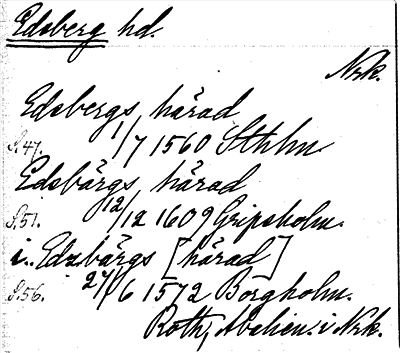 Edsberg hd.
Nrk.
Edsbergs härad
S.47. 1/7 1560 Sthlm
Edsbärgs härad
S.51. 12/12 1609 Gripsholm.
i.. Edzbärgs [härad]
S.56. 27/6 1572 Borgholm.
Roth, i Nrk.